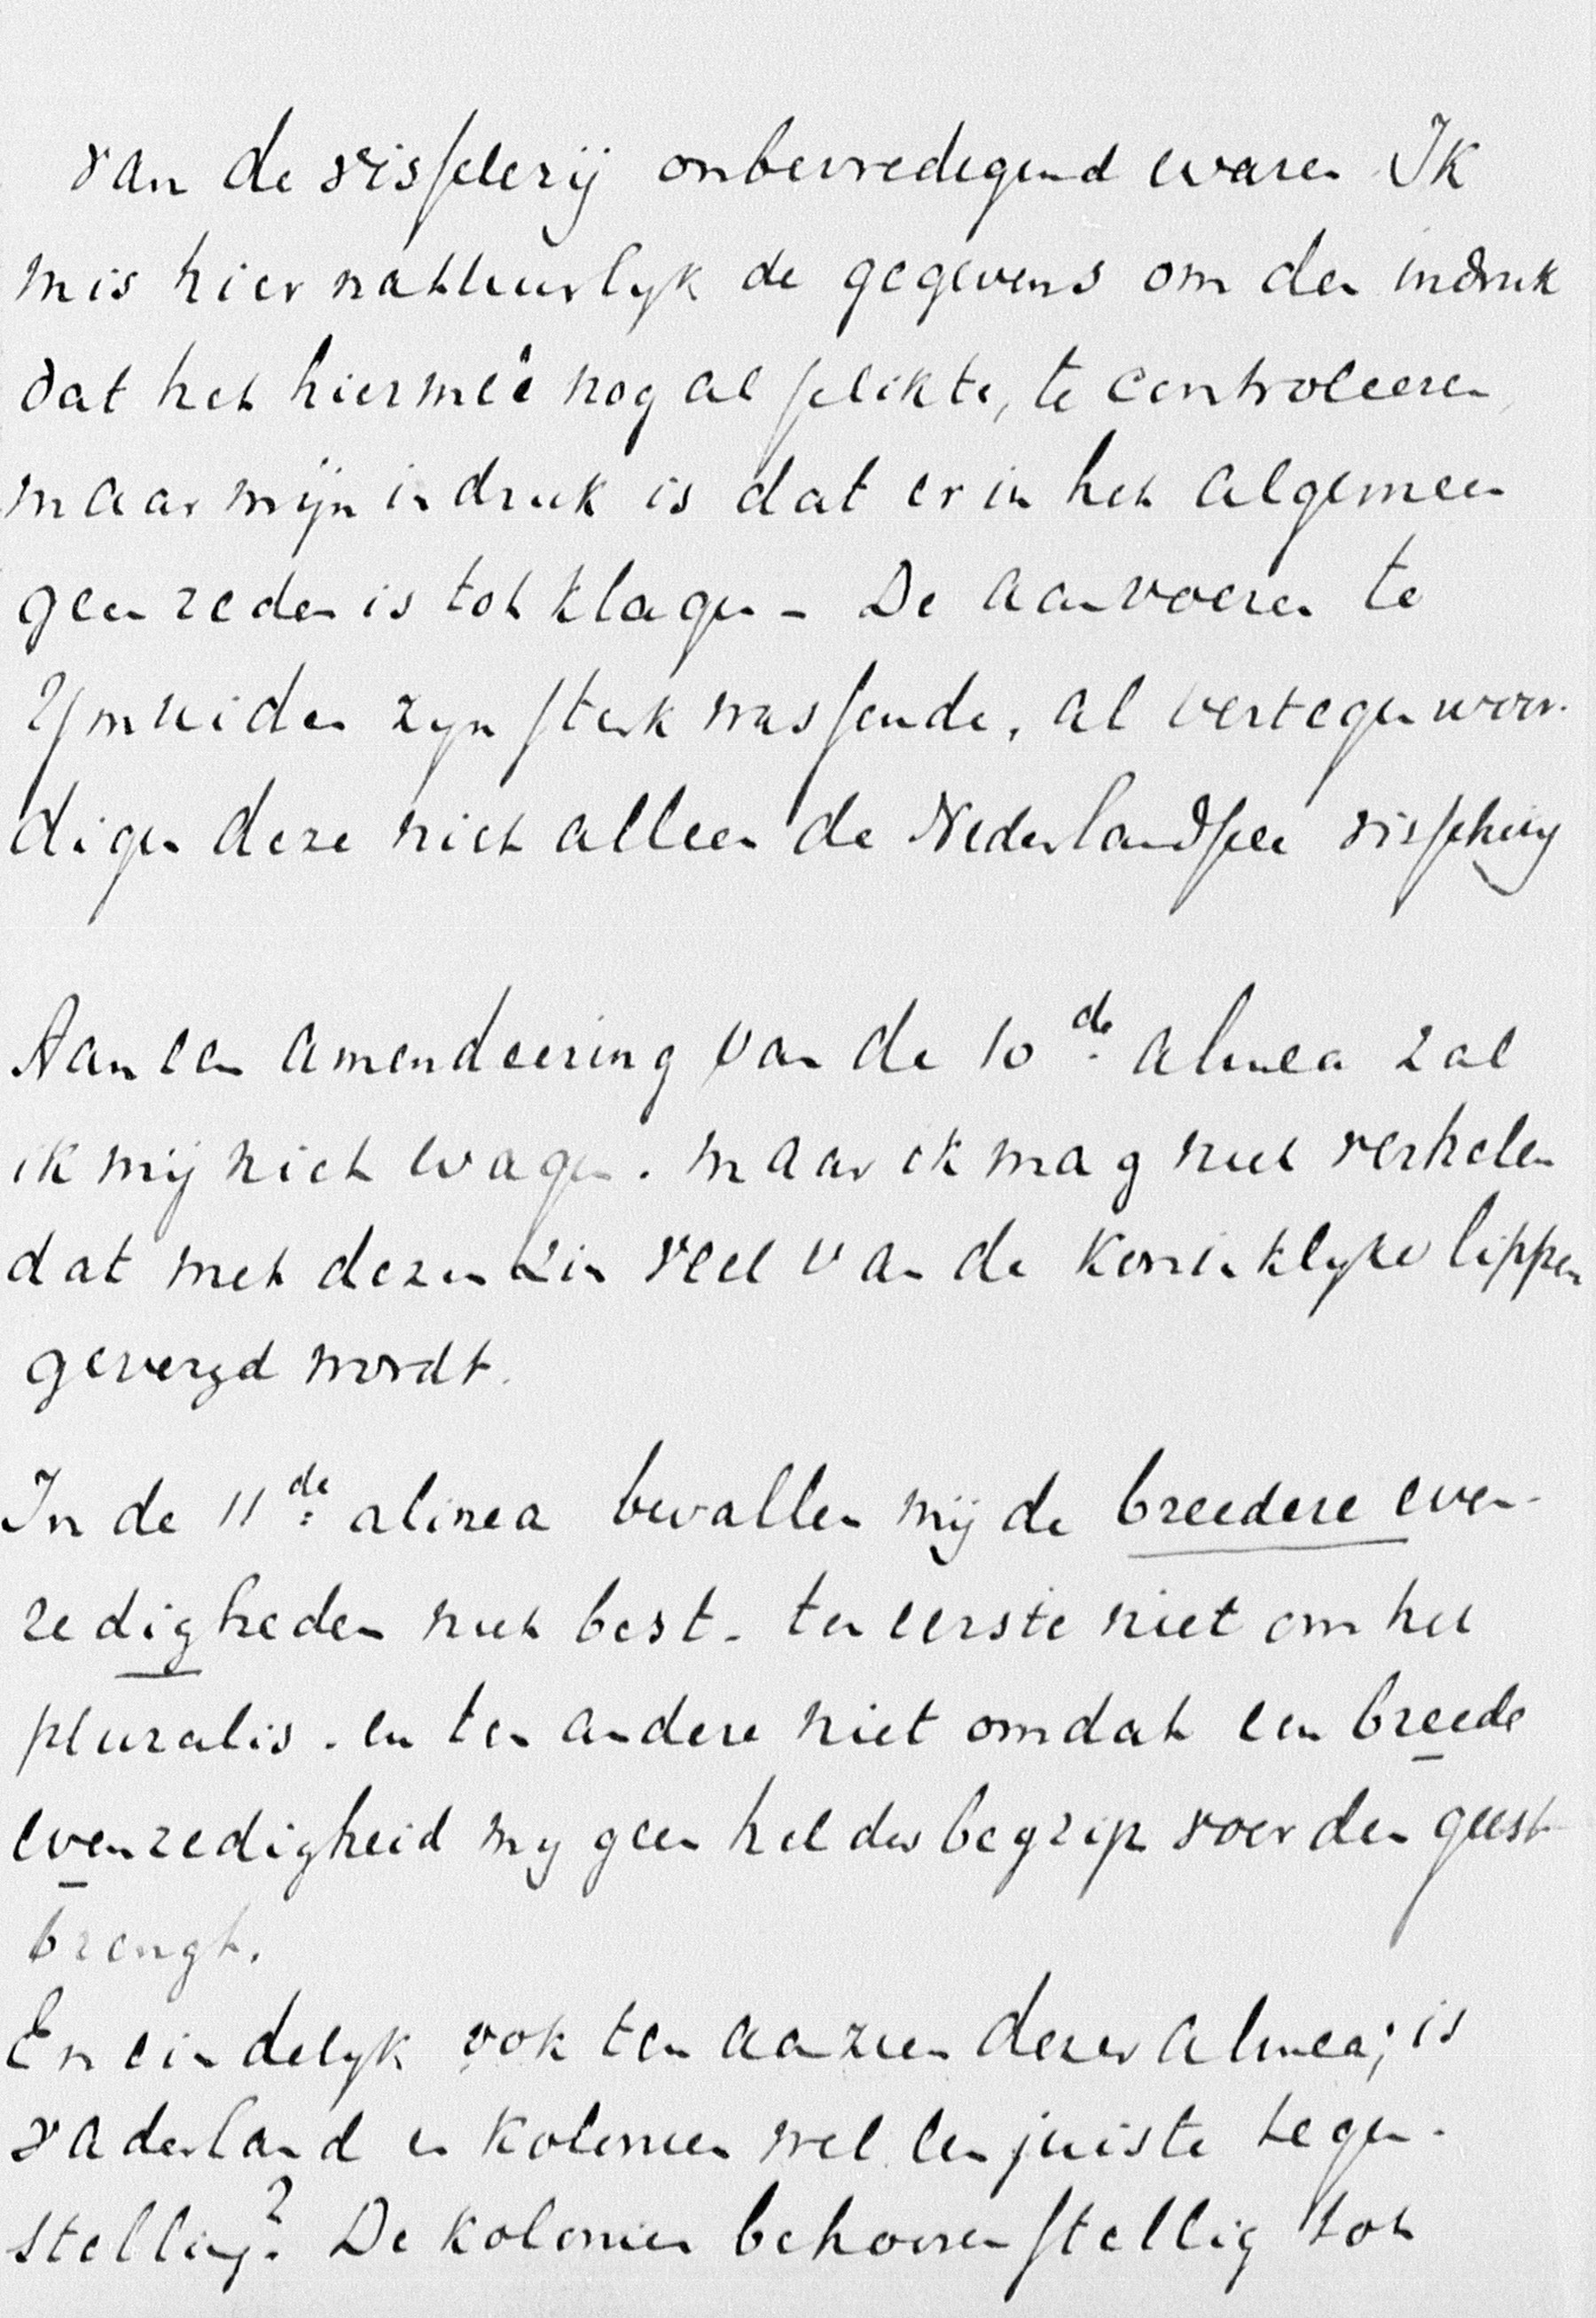 van de visscherij onbevredigend waren Ik
mis hier natuurlyk de gegevens om den indruk
dat het hiermeê nog al schikte, te controleeren,
maar mijn indruk is dat er in het algemeen
geen reden is tot klagen - De aanvoeren te
Ymuiden zyn sterk wassende, al vertegenwoor-
digen deze niet alleen de Nederlandsche visscherij
Aan een amendeering van de 10de alinea zal
ik mij niet wagen. maar ik mag niet verhelen
dat met dezen zin veel van de koninklyke lippen
gevergd wordt.
In de 11de alinea bevallen mij de breedere even-
redigheden niet best. ten eerste niet om het
pluralis. en ten andere niet omdat een breede
evenredigheid my geen helder begrip voor den geest
brengt.
En eindelyk ook ten aanzien dezer alinea; is
vaderland en kolonien wel een juiste tegen-
stelling? De kolonien behooren stellig tot